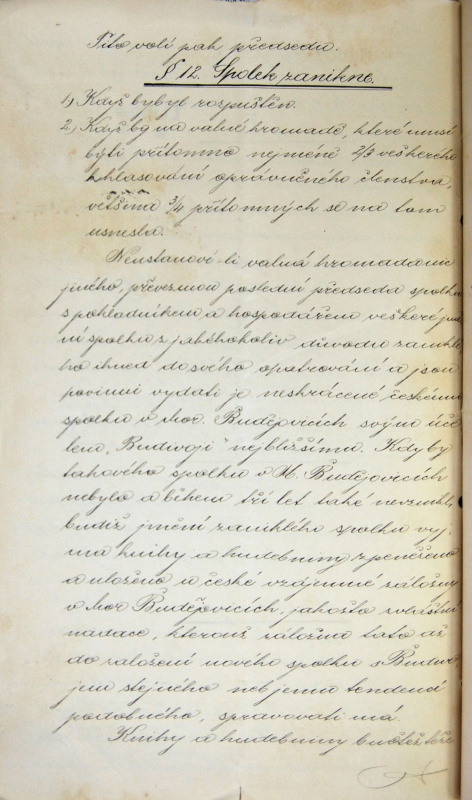 Tito volí pak předsedu.
§ 12. Spolek zanikne.
1) Když by byl rozpuštěn.
2) Když by na valné hromadě, které musí
býti přítomno nejméně 2/3 veškerého
k hlasování oprávněného členstva,
většina 3/4 přítomných se na tom
usnesla.
Neustanoví-li valná hromada ni
jiného, převezmou poslední předseda spolku
s pokladníkem a hospodářem veškeré jmě
ní spolku z jakéhokoliv důvodu zanik
ho ihned do svého opatrování a jsou
povinni vydati je neztrácené českému
spolku v Mor. Budějovicích svým úče
lem "Budivoji" nejbližšímu. Kdyby
takového spolku v M. Budějovicích
nebylo a během tří let také nevznikl,
budiž jmění zaniklého spolku vyj
ma knihy a hudebniny zpeněženo
a uloženo u české vzájemné záložny
v Mor. Budějovicích, jakožto zvláštní
nadace, kterouž záložna tato až
do založení nového spolku s Budivo
jem stejného neb jemu tendencí
podobného, spravovati má.
Knihy a hudebniny buďtež